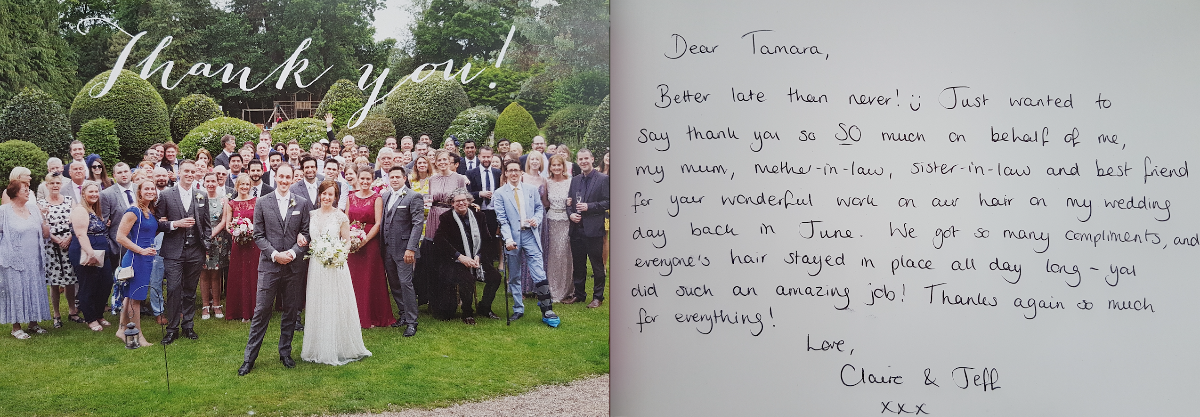 Thank you!
Dear Tamara,
Better late than never! :) Just wanted to
say thank you so SO much on behalf of me,
my mum, mother-in-law, sister-in-law and best friend
for your wonderful work on our hair on my wedding
day back in June. We got so many compliments, and
everyone's hair stayed in place all day long - you
did such an amazing job! Thanks again so much
for everything!
Love,
Claire & Jeff
xxx